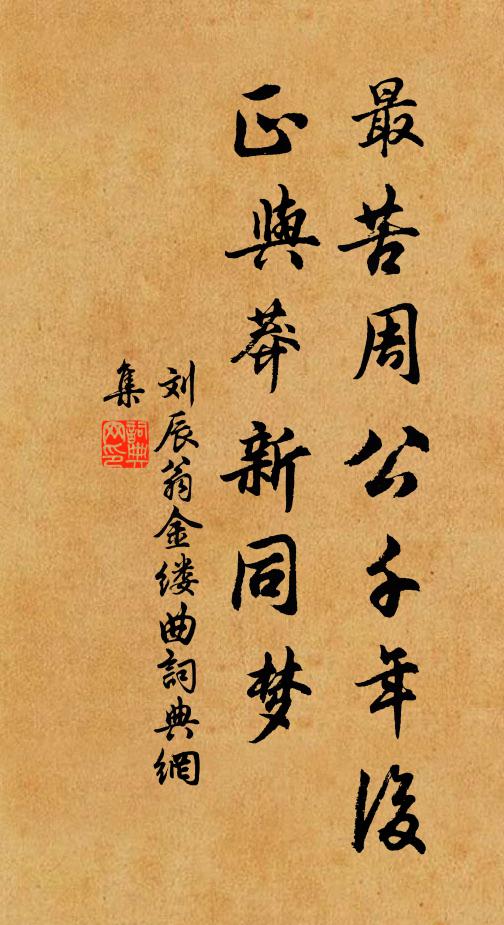 最苦周公千年後
正與莽新同梦
刘辰翁金缕曲詞典網
集
詞典網印